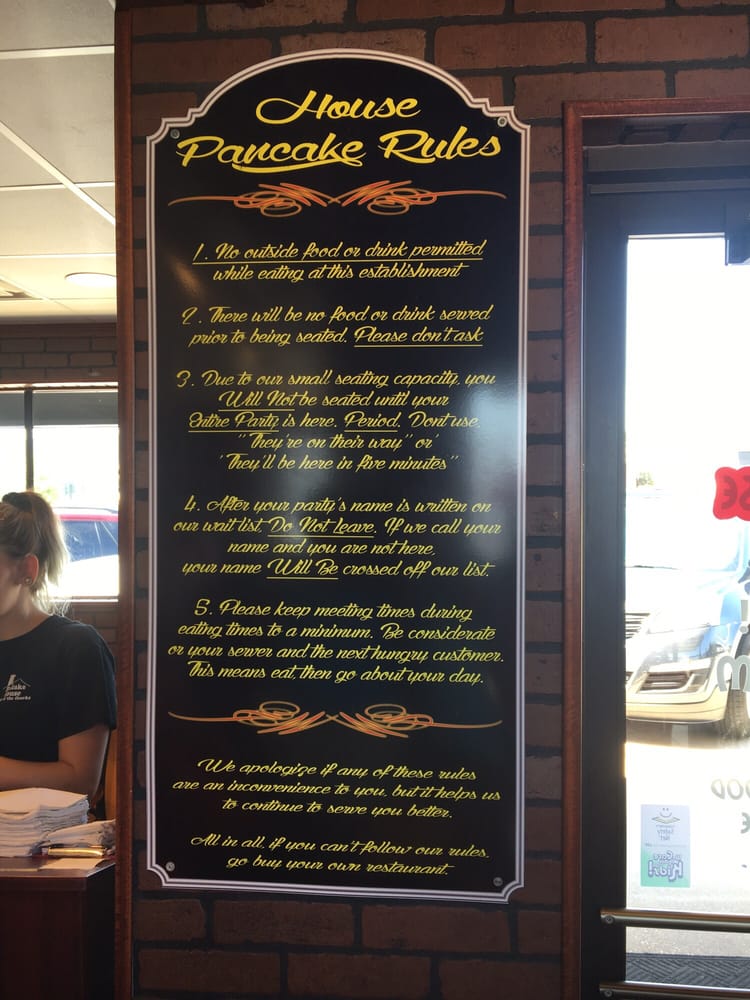 House
Pancake Rules
1. No outside food or drink permitted
while eating at this establishment
2. There will be no food or drink served
prior to being seated. Please don't ask
3. Due to our small seating capacity, you
Will Not be seated until your
Entire Party is here. Period. Dont use,
"They're on their way" or'
'They'll be here in five minutes"
4. After your party's name is written on
our wait list, Do Not Leave. If we call your
name and you are not here,
your name Will Be crossed off our list.
5. Please keep meeting times during
eating times to a minimum. Be considerate
or your server and the next hungry customer.
This means eat, then go about your day.
We apologize if any of these rules
are an inconvenience to you, but it helps us
to continue to serve you better.
All in all, if you can't follow our rules,
go buy your own restaurant.
Safety
Net
Kids!